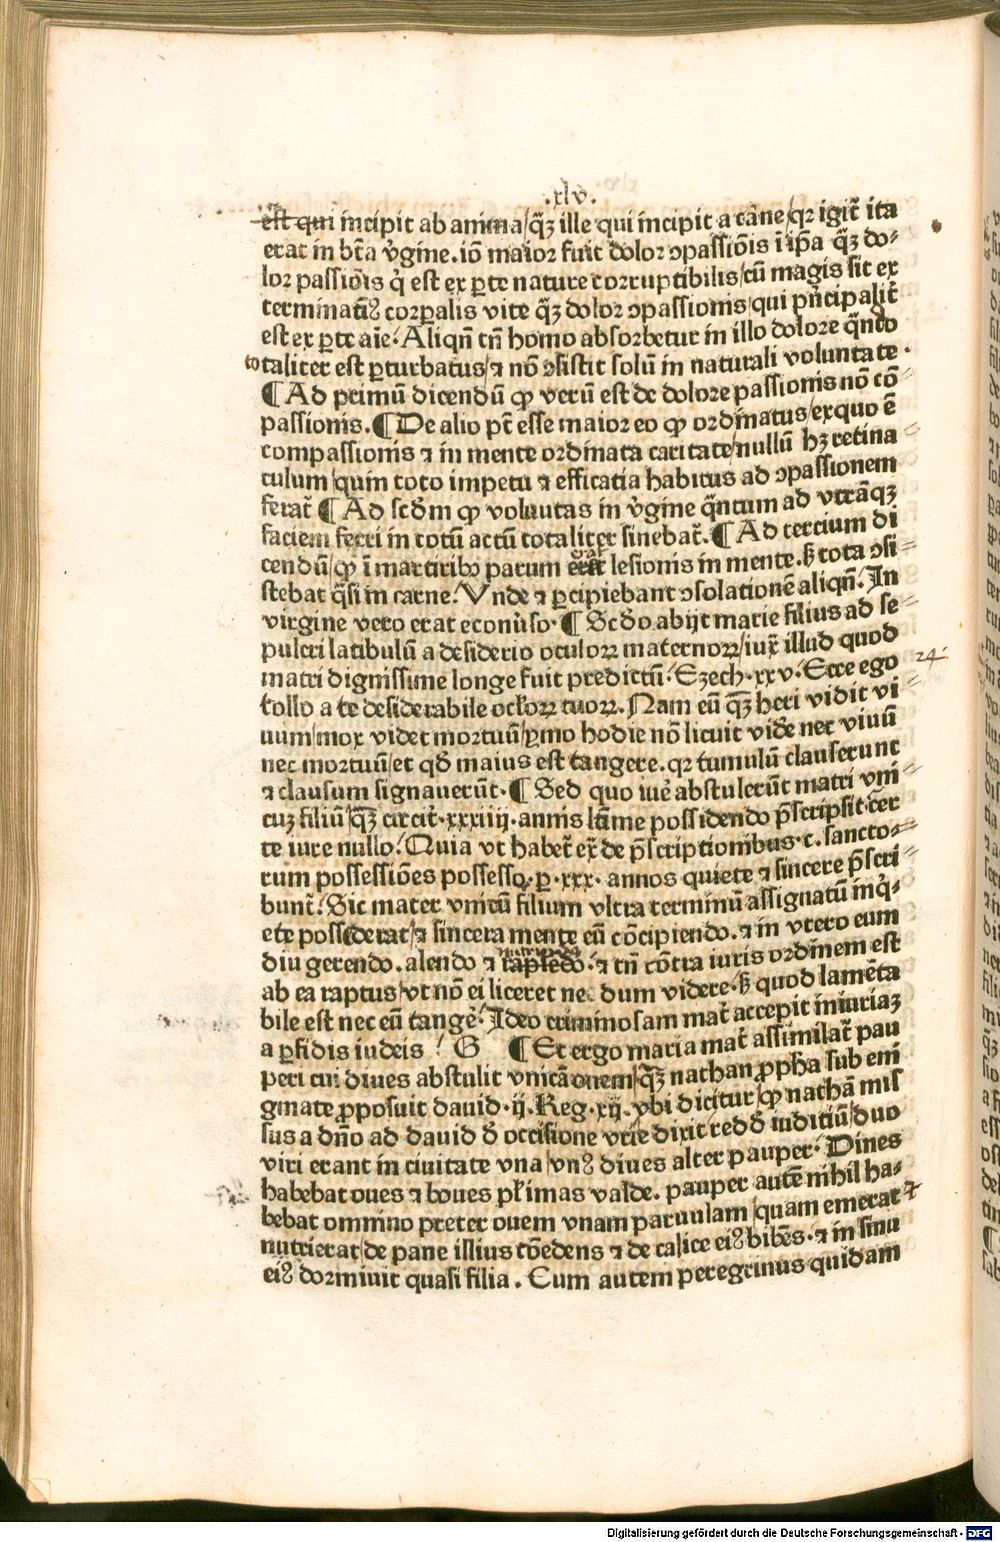 .xlv.
est qui incipit ab anima/q̄ꝫ ille qui incipit a carne/qꝛ igit̄ ita
erat in btā v̓gine. iō maior fuit dolor ↄpassiōis ī ip̄a q̄ꝫ do⸗
lor passiōis q̇ est ex ꝑte nature corruptibilis/cū magis sit ex
terminatiꝰ corꝑalis vite q̄ꝫ dolor ↄpassionis/qui pn̄cipalit̄
est ex ꝑte aīe. Aliqn̄ tn̄ homo absorbetur in illo dolore qn̄do
totaliter est ꝑturbatus/⁊ nō ↄsistit solū in naturali voluntate.
¶ Ad primū dicendū ꝙ verū est de dolore passionis nō cō⸗
passionis. ¶ De alio pt̄ esse maior eo ꝙ ordinatus/ex quo ē
compassionis ⁊ in mente ordinata caritate/nullū hꝫ retina
culum/quin toto impetu ⁊ efficatia habitus ad ↄpassionem
ferat̄ ¶ Ad scd̄m ꝙ voluntas in v̓gine q̄ntum ad vtrāqꝫ
faciem ferri in totū actū totaliter sinebat̄. ¶ Ad tercium di
cendū/ꝙ ī martiribꝰ parum erat lesionis in mente. sꝫ tota ↄsi⸗
stebat q̄si in carne. Vnde ⁊ ꝑcipiebant ↄsolationē aliqn̄. In
virgine vero erat econv̓so. ¶ Scd̓o abijt marie filius ad se⸗
pulcri latibulū a desiderio oculoꝝ maternoꝝ/iux̄ illud quod
matri dignissime longe fuit predictū. Ezech. xxv. Ecce ego
24
tollo a te desiderabile oclōꝝ tuoꝝ. Nam eū q̄ꝫ heri vidit vi⸗
uum/mox videt mortuū/ymo hodie nō licuit videre nec viuū
nec mortuū/et qd̓ maius est tangere. qꝛ tumulū clauserunt
⁊ clausum signauerūt. ¶ Sed quo iure abstulerūt matri vni⸗
cuꝫ filiū/q̄ꝫ circit̄. xxxiiij. annis lḡiime possidendo p̄scripsit. cer
te iure nullo. Quia vt habet̄ ex̄ de p̄scriptionibus. c. sancto⸗
rum possessiōes possesso. ꝑ. xxx. annos quiete ⁊ sincere p̄scri⸗
bunt̄. Sic mater vnicū filium vltra terminū assignatū inq̇⸗
ete possederat/⁊ sincera mente eū cōcipiendo. ⁊ in vtero eum
diu gerendo. alendo ⁊ nutriendo. ⁊ tn̄ cōtra iuris ordinem est
ab ea raptus/vt nō ei liceret nec dum videre. sꝫ quod lamēta
bile est nec eū tange̓. Ideo criminosam mat̄ accepit iniuriaꝫ
a ꝑfidis iudeis. G ¶ Et ergo maria mat̄ assimilat̄ pau
peri cui diues abstulit vnicā ouem/q̄ꝫ nathan ꝓpha sub eni
gmate ꝓposuit dauid. ij. Reg. xij. vbi dicitur/ꝙ nathā mis
sus a dn̄o ad dauid d̓ occisione vrie dixit redd̓ iuditiū/duo
viri erant in ciuitate vna/vnꝰ diues alter pauper. Diues
habebat oues ⁊ boues pl̄imas valde. pauper autē nihil ha⸗
bebat omnino preter ouem vnam paruulam/quam emerat ⁊
nutrierat/de pane illius cōedens ⁊ de calice eiꝰ bibēs. ⁊ in sinu
eiꝰ dormiuit quasi filia. Cum autem peregrinus quidam
Digitalisierung gefördert durch die Deutsche Forschungsgemeinschaft - DFG